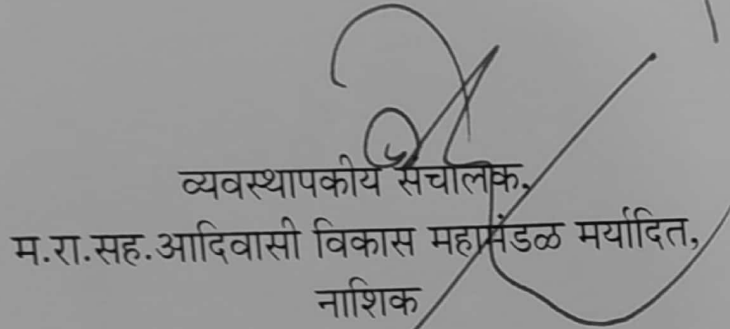 व्यवस्थापकीय संचालक,
म.रा.सह.आदिवासी विकास महामंडळ मर्यादित,
नाशिक